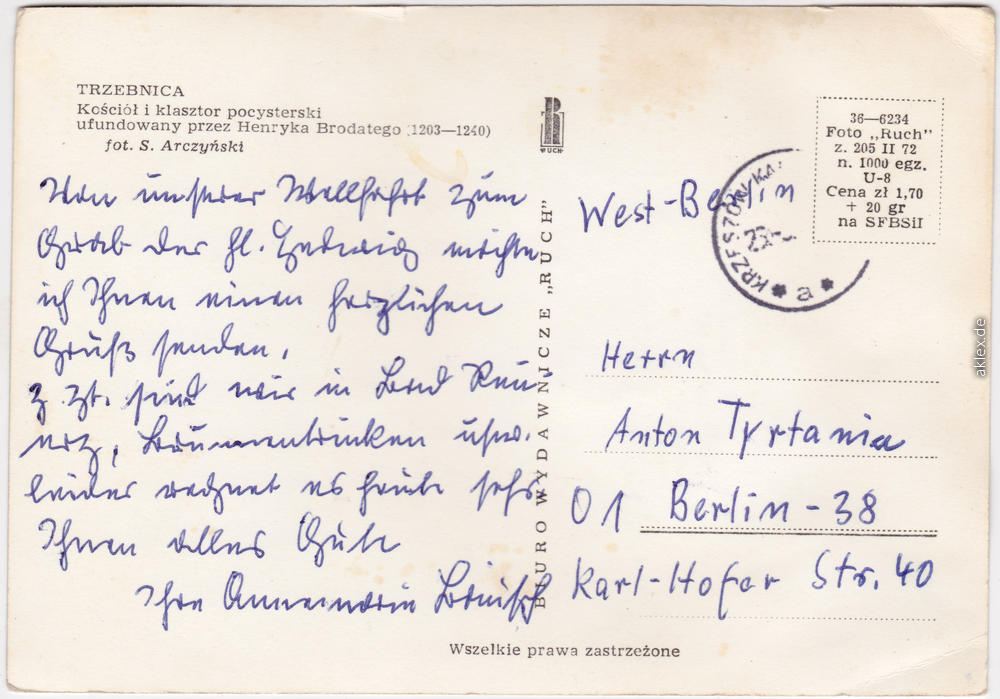 TRZEBNICA
Kościół i klasztor pocysterski
ufundowany przez Henryka Brodatego (1203—1240)
fot. S. Arczyński
Von unserer Wallfahrt zum
Grab der hl. Hedwig möchte
ich Ihnen einen herzlichen
Gruß senden.
Z. Zt. sind wir in Bad Rein-
erz, Brunnentrinken usw.
leider regnet es heute sehr
Ihnen alles Gute
Ihre Annemarie
RUCH
BIURO WYDAWNICZE „RUCH"
36—6234
Foto „Ruch"
z. 205 II 72
n. 1000 egz.
U-8
Cena zł 1,70
+ 20 gr
na SFBSiI
a
West-Berlin
Herrn
Anton Tyrtania
01 Berlin-38
Karl-Hofer Str. 40
Wszelkie prawa zastrzeżone
aklex.de